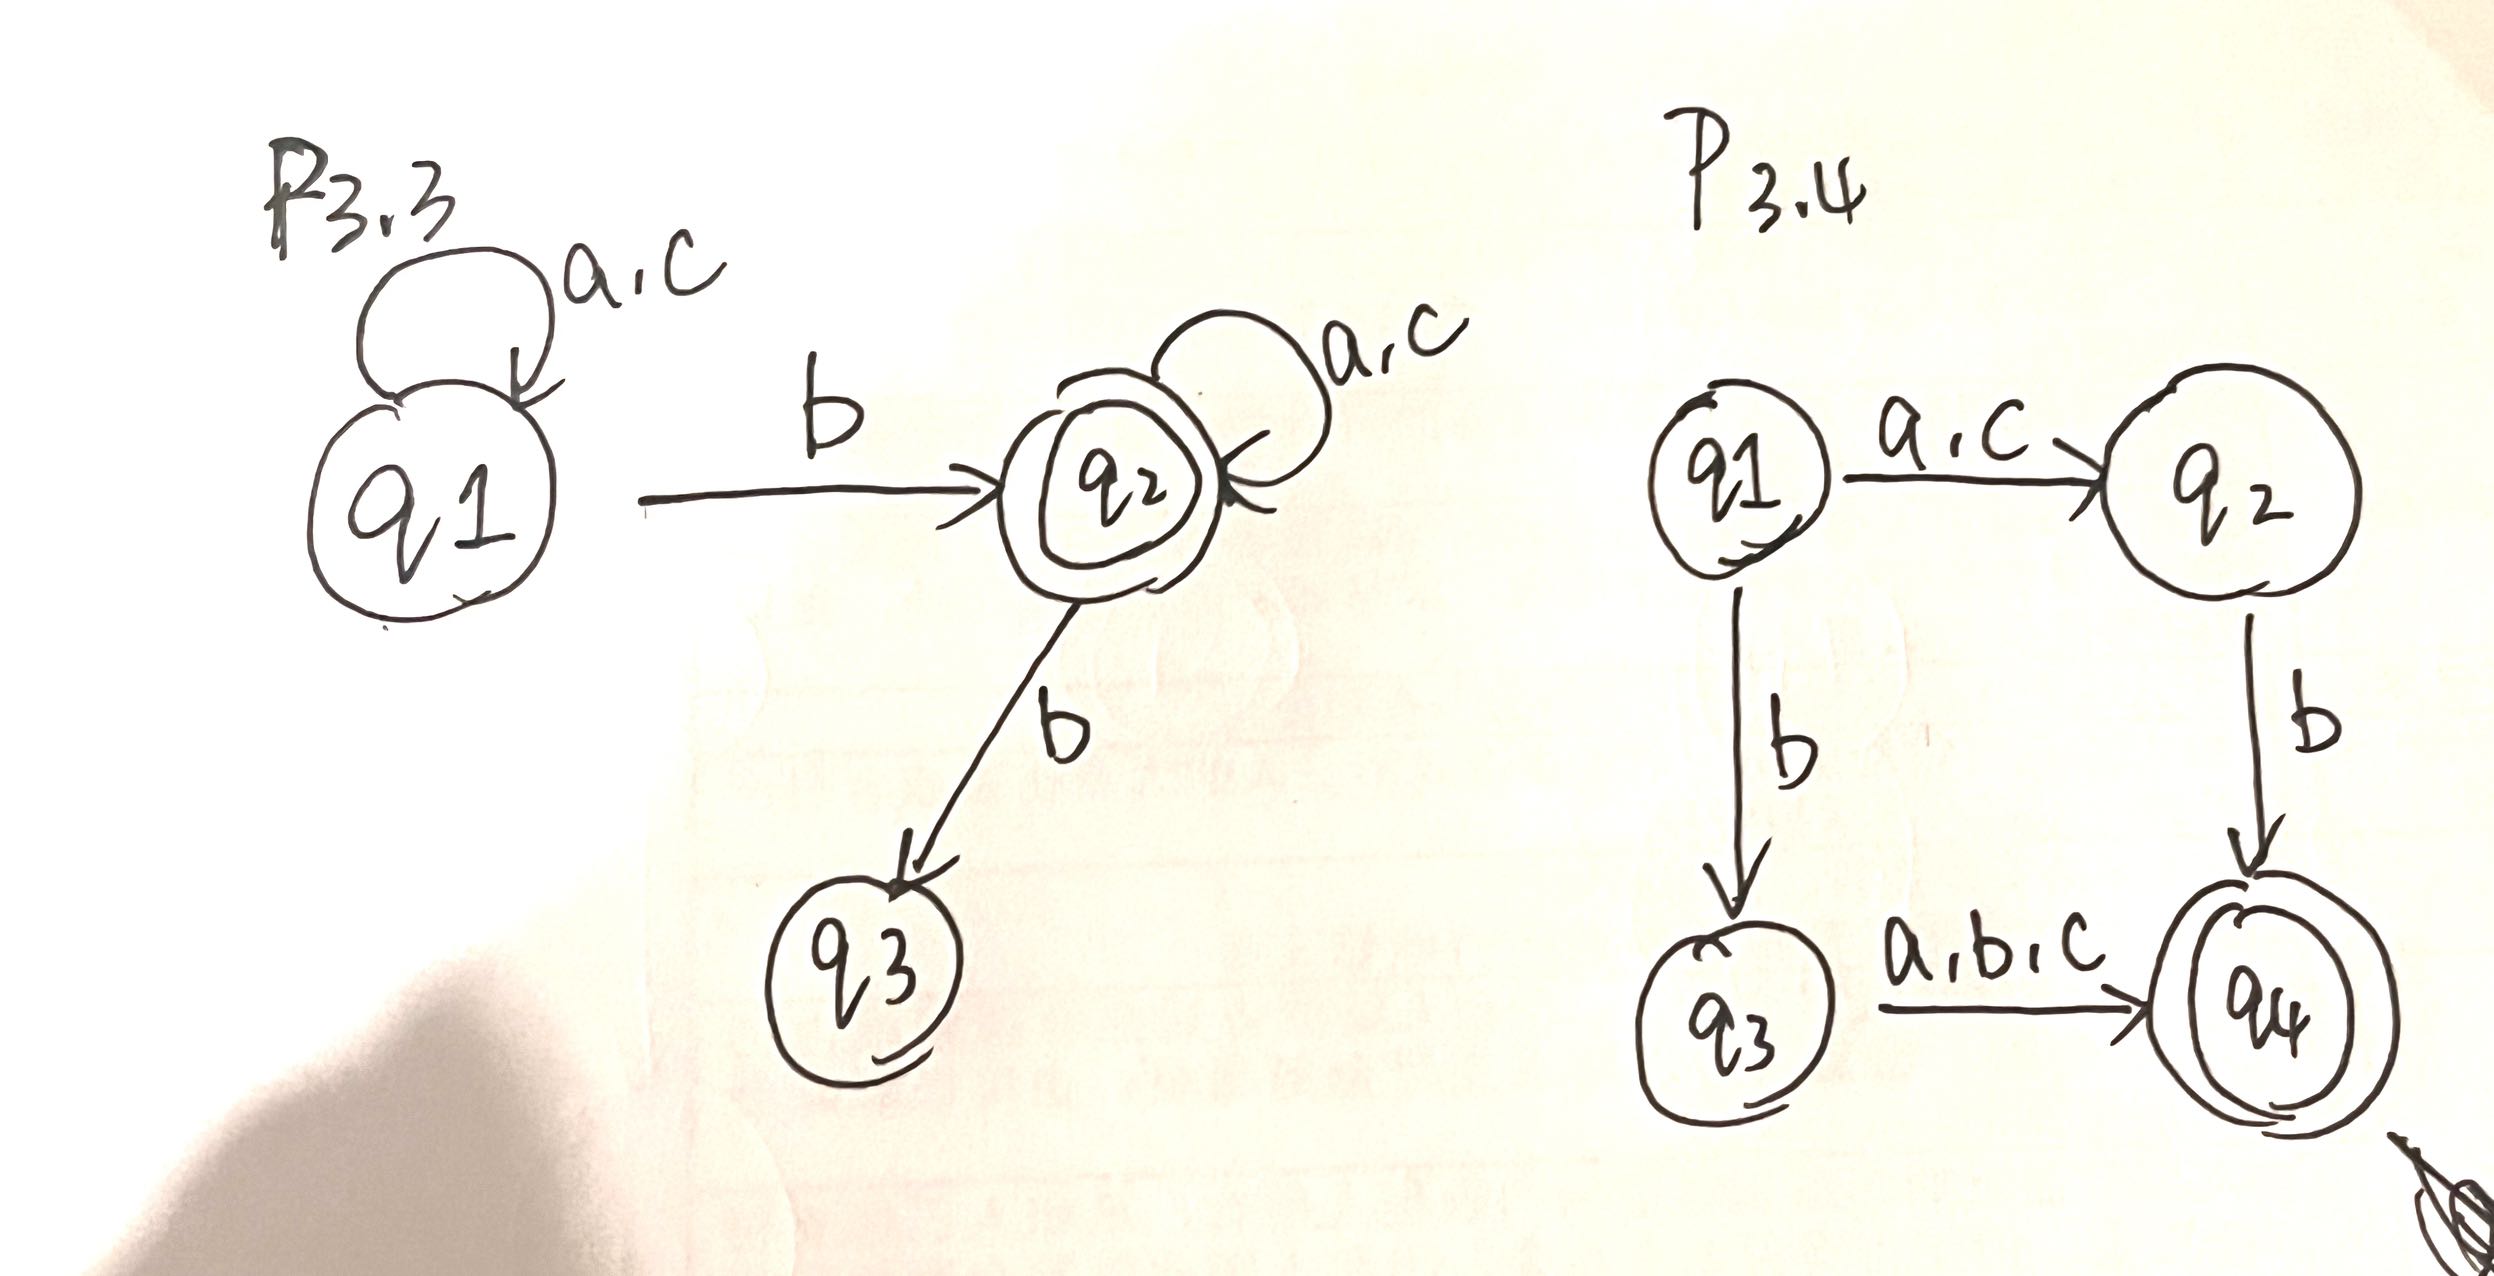 P3.3
a,c
b
q1
a,c
q2
b
q3
P3.4
q1
a,c
q2
b
b
q3
a,b,c
q4